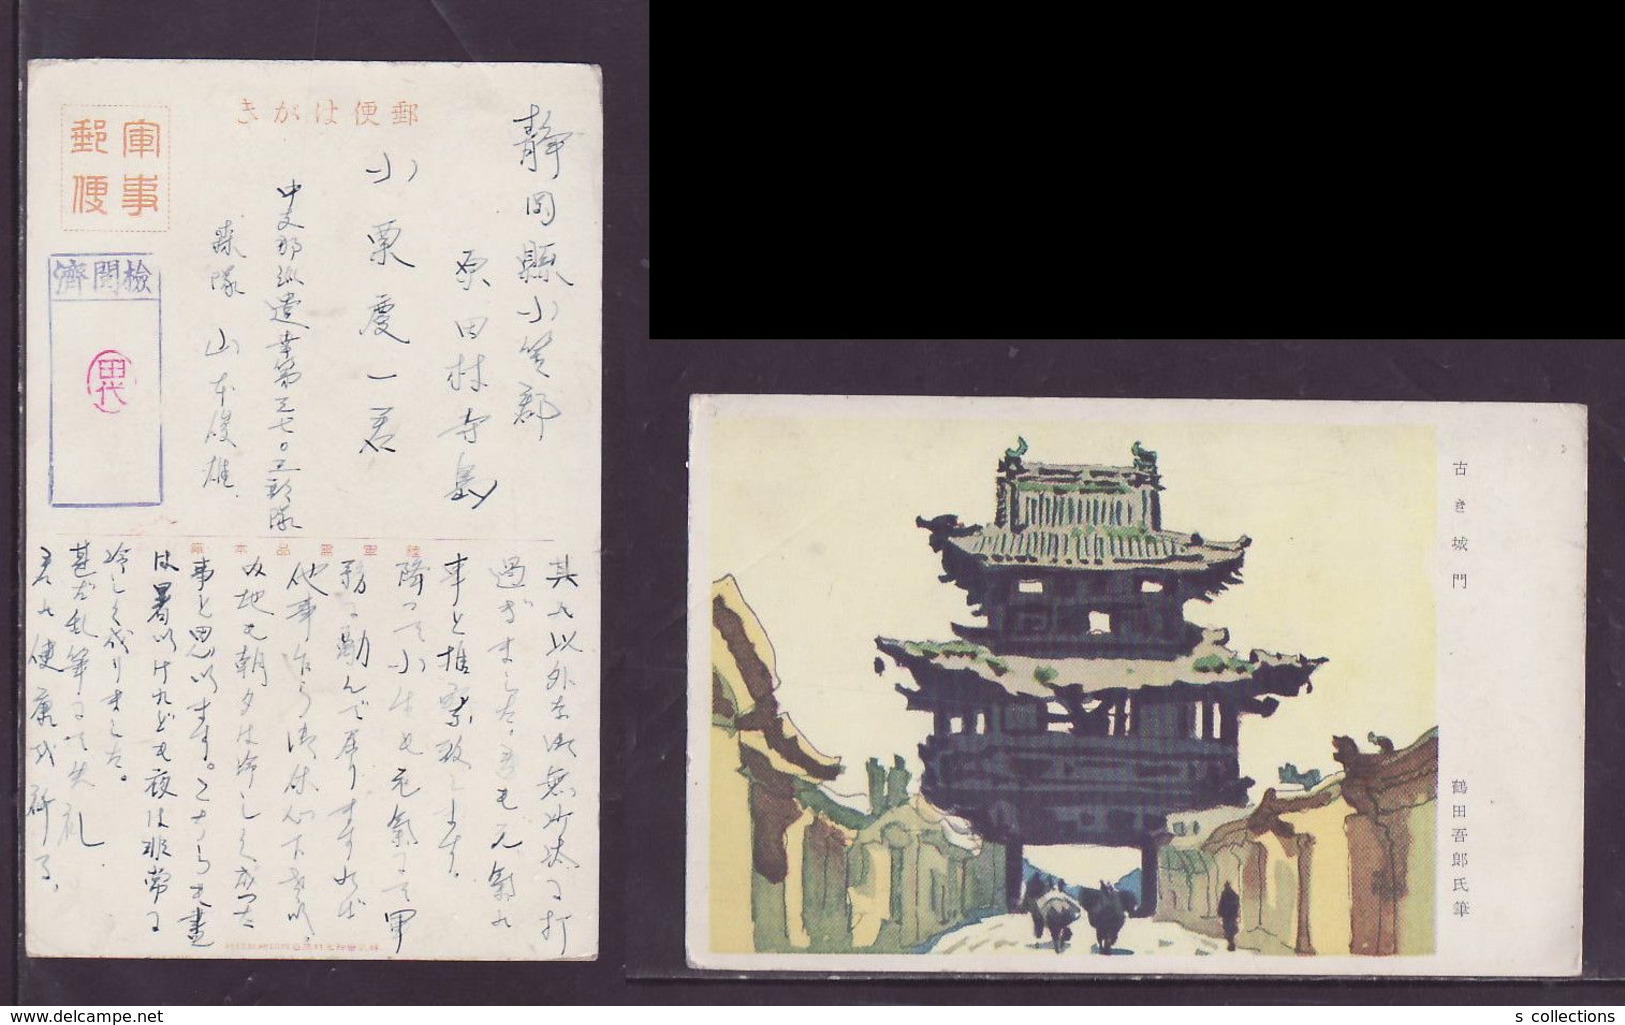 郵便はがき
軍事
郵便
検閲済
田代
静岡縣小笠郡
原田村寺島
小栗慶一君
中支那派遣幸第三七〇三部隊
森隊 山本俊雄
陸軍需品本廠
其れ以外は御無沙汰に打
過ぎました。君も元気の
事と推察致します。
降って小生も元気にて軍
務に励んで居りますれば
他事乍ら御休心下さい。
当地も朝夕は冷しく成った
事と思います。こちらも昼
は暑いけれども夜は非常に
冷しく成りました。
甚だ乱筆にて失礼
君の健康を祈る。
古き城門
鶴田吾郎氏筆
www.delcampe.net
s collections